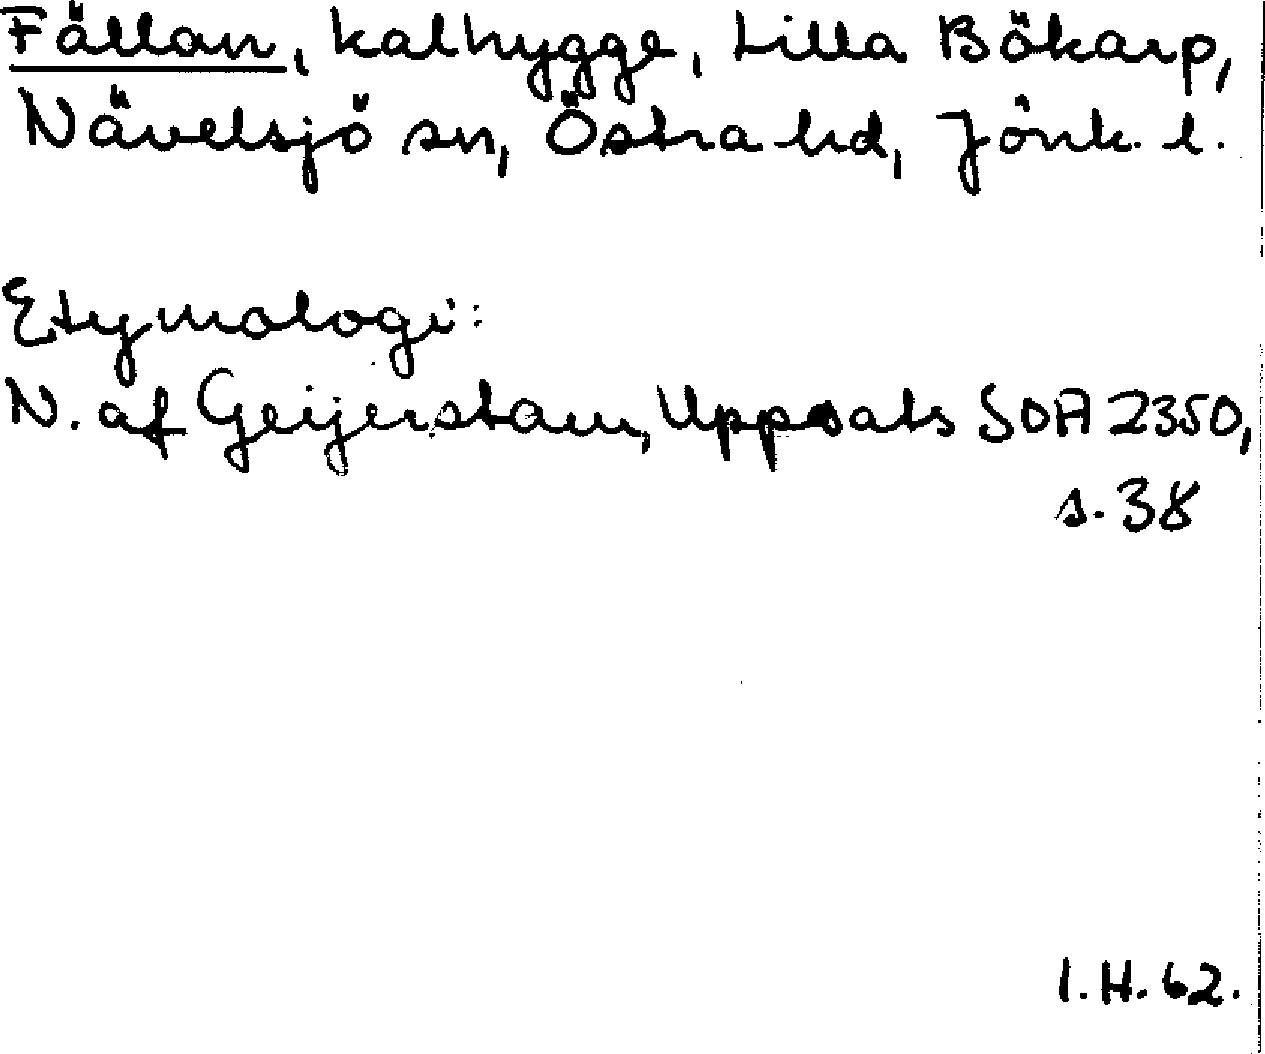 Fällan, kalhygge, Lilla Bökarp,
Nävelsjö sn, Östra hd, Jönk. l.
Etymologi:
N. af Geijerstam, Uppsats SOA 2350,
s. 38
I.H. 62.